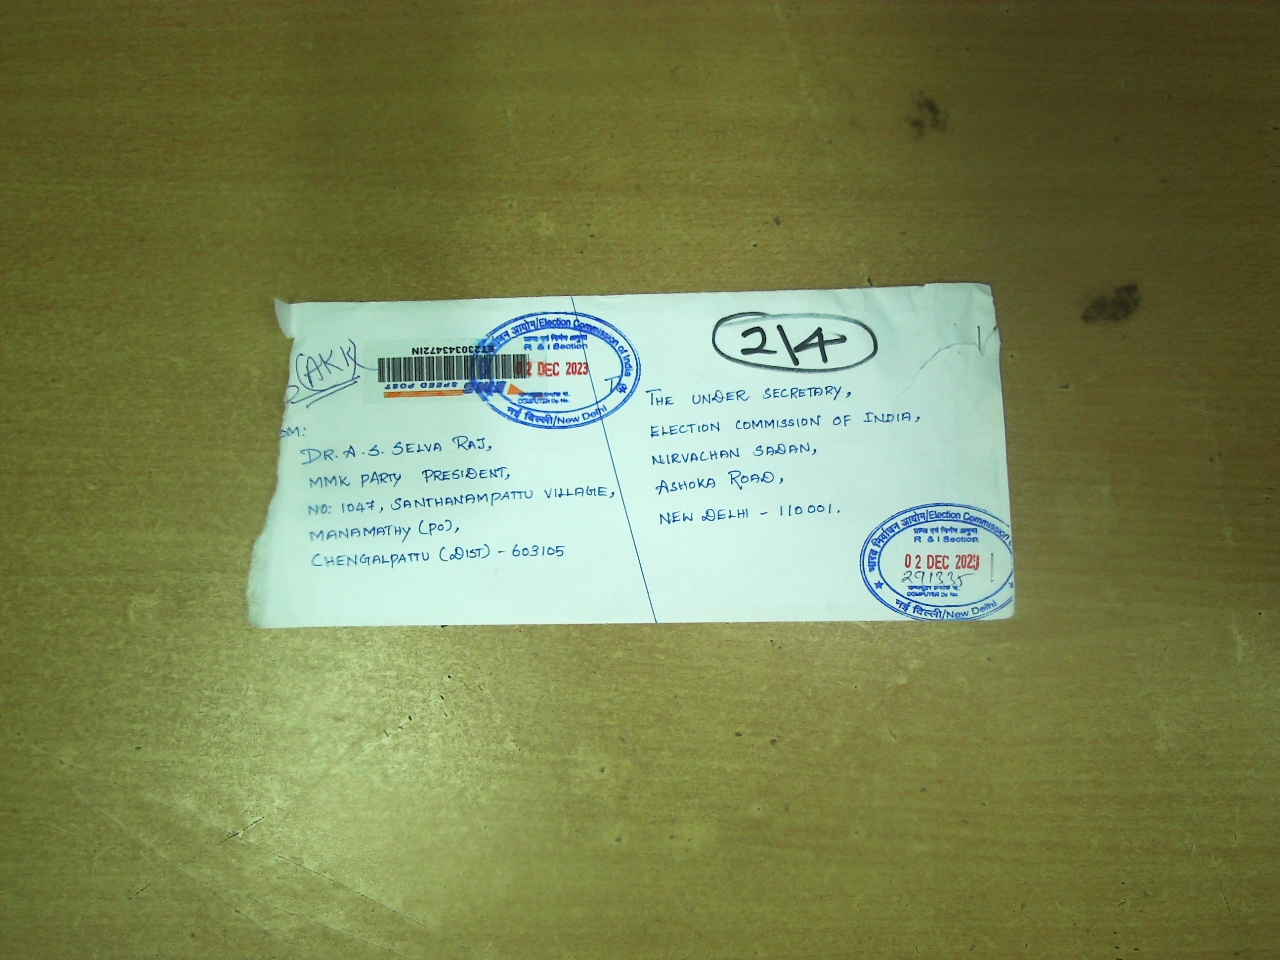 (AKK)
ET230343472IN
SPEED POST
भारत निर्वाचन आयोग/Election Commission of India
R & I Section
02 DEC 2023
COMPUTER Dy. No.
नई दिल्ली/New Delhi
2/4
OM:
DR. A. S. SELVA RAJ,
MMK PARTY PRESIDENT,
NO: 1047, SANTHANAMPATTU VILLAGE,
MANAMATHY (PO),
CHENGALPATTU (DIST) - 603105
To
THE UNDER SECRETARY,
ELECTION COMMISSION OF INDIA,
NIRVACHAN SADAN,
ASHOKA ROAD,
NEW DELHI - 110001.
भारत निर्वाचन आयोग/Election Commission
R & I Section
02 DEC 2023
291335
COMPUTER Dy. No.
नई दिल्ली/New Delhi